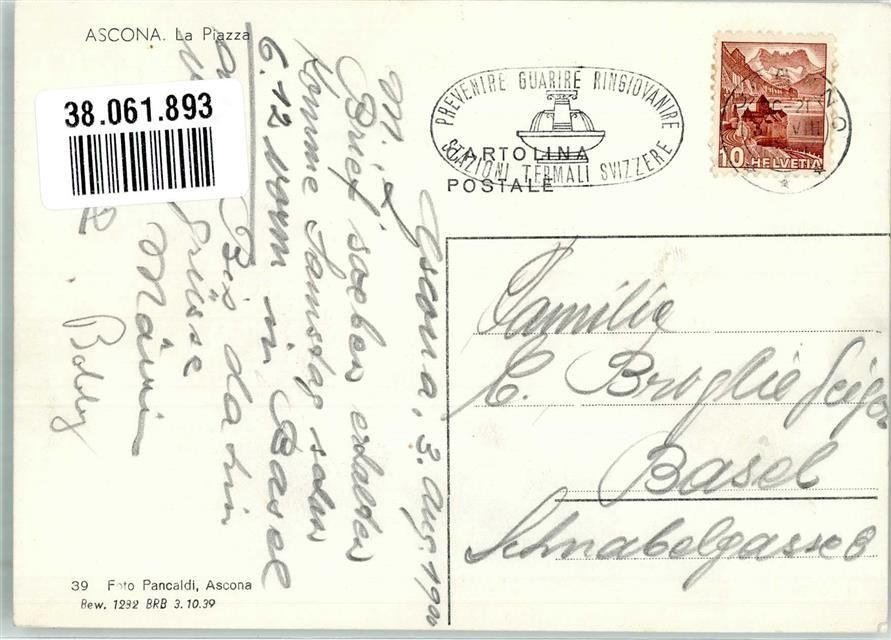 ASCONA. La Piazza
38.061.893
PREVENIRE GUARIRE RINGIOVANIRE
STAZIONI TERMALI SVIZZERE
CARTOLINA
POSTALE
10 HELVETIA
VIII
Ascona, 3. Aug. 19
M. L.
Brief soeben erhalten
Komme Samstag schon
6.12 in Basel
Bis dahin
Grüsse
Bobby
Familie
E. Broglie Geiger
Basel
Schnabelgasse 8
39 Foto Pancaldi, Ascona
Bew. 1292 BRB 3.10.39